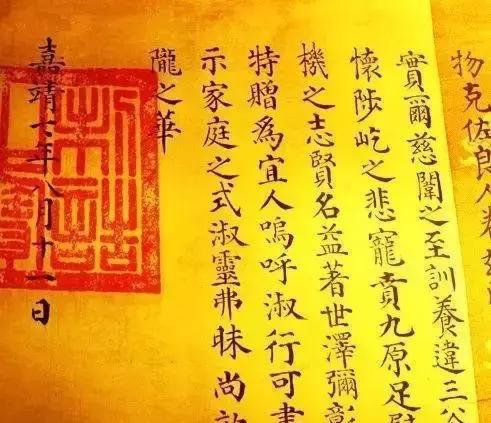 物克佐良人
實爾慈闈之至訓養違三
懷陟屺之悲寵賁九原足慰
機之志賢名益著世澤彌彰
特贈為宜人嗚呼淑行可書
示家庭之式淑靈弗昧尚
隴之華
嘉靖七年八月十一日